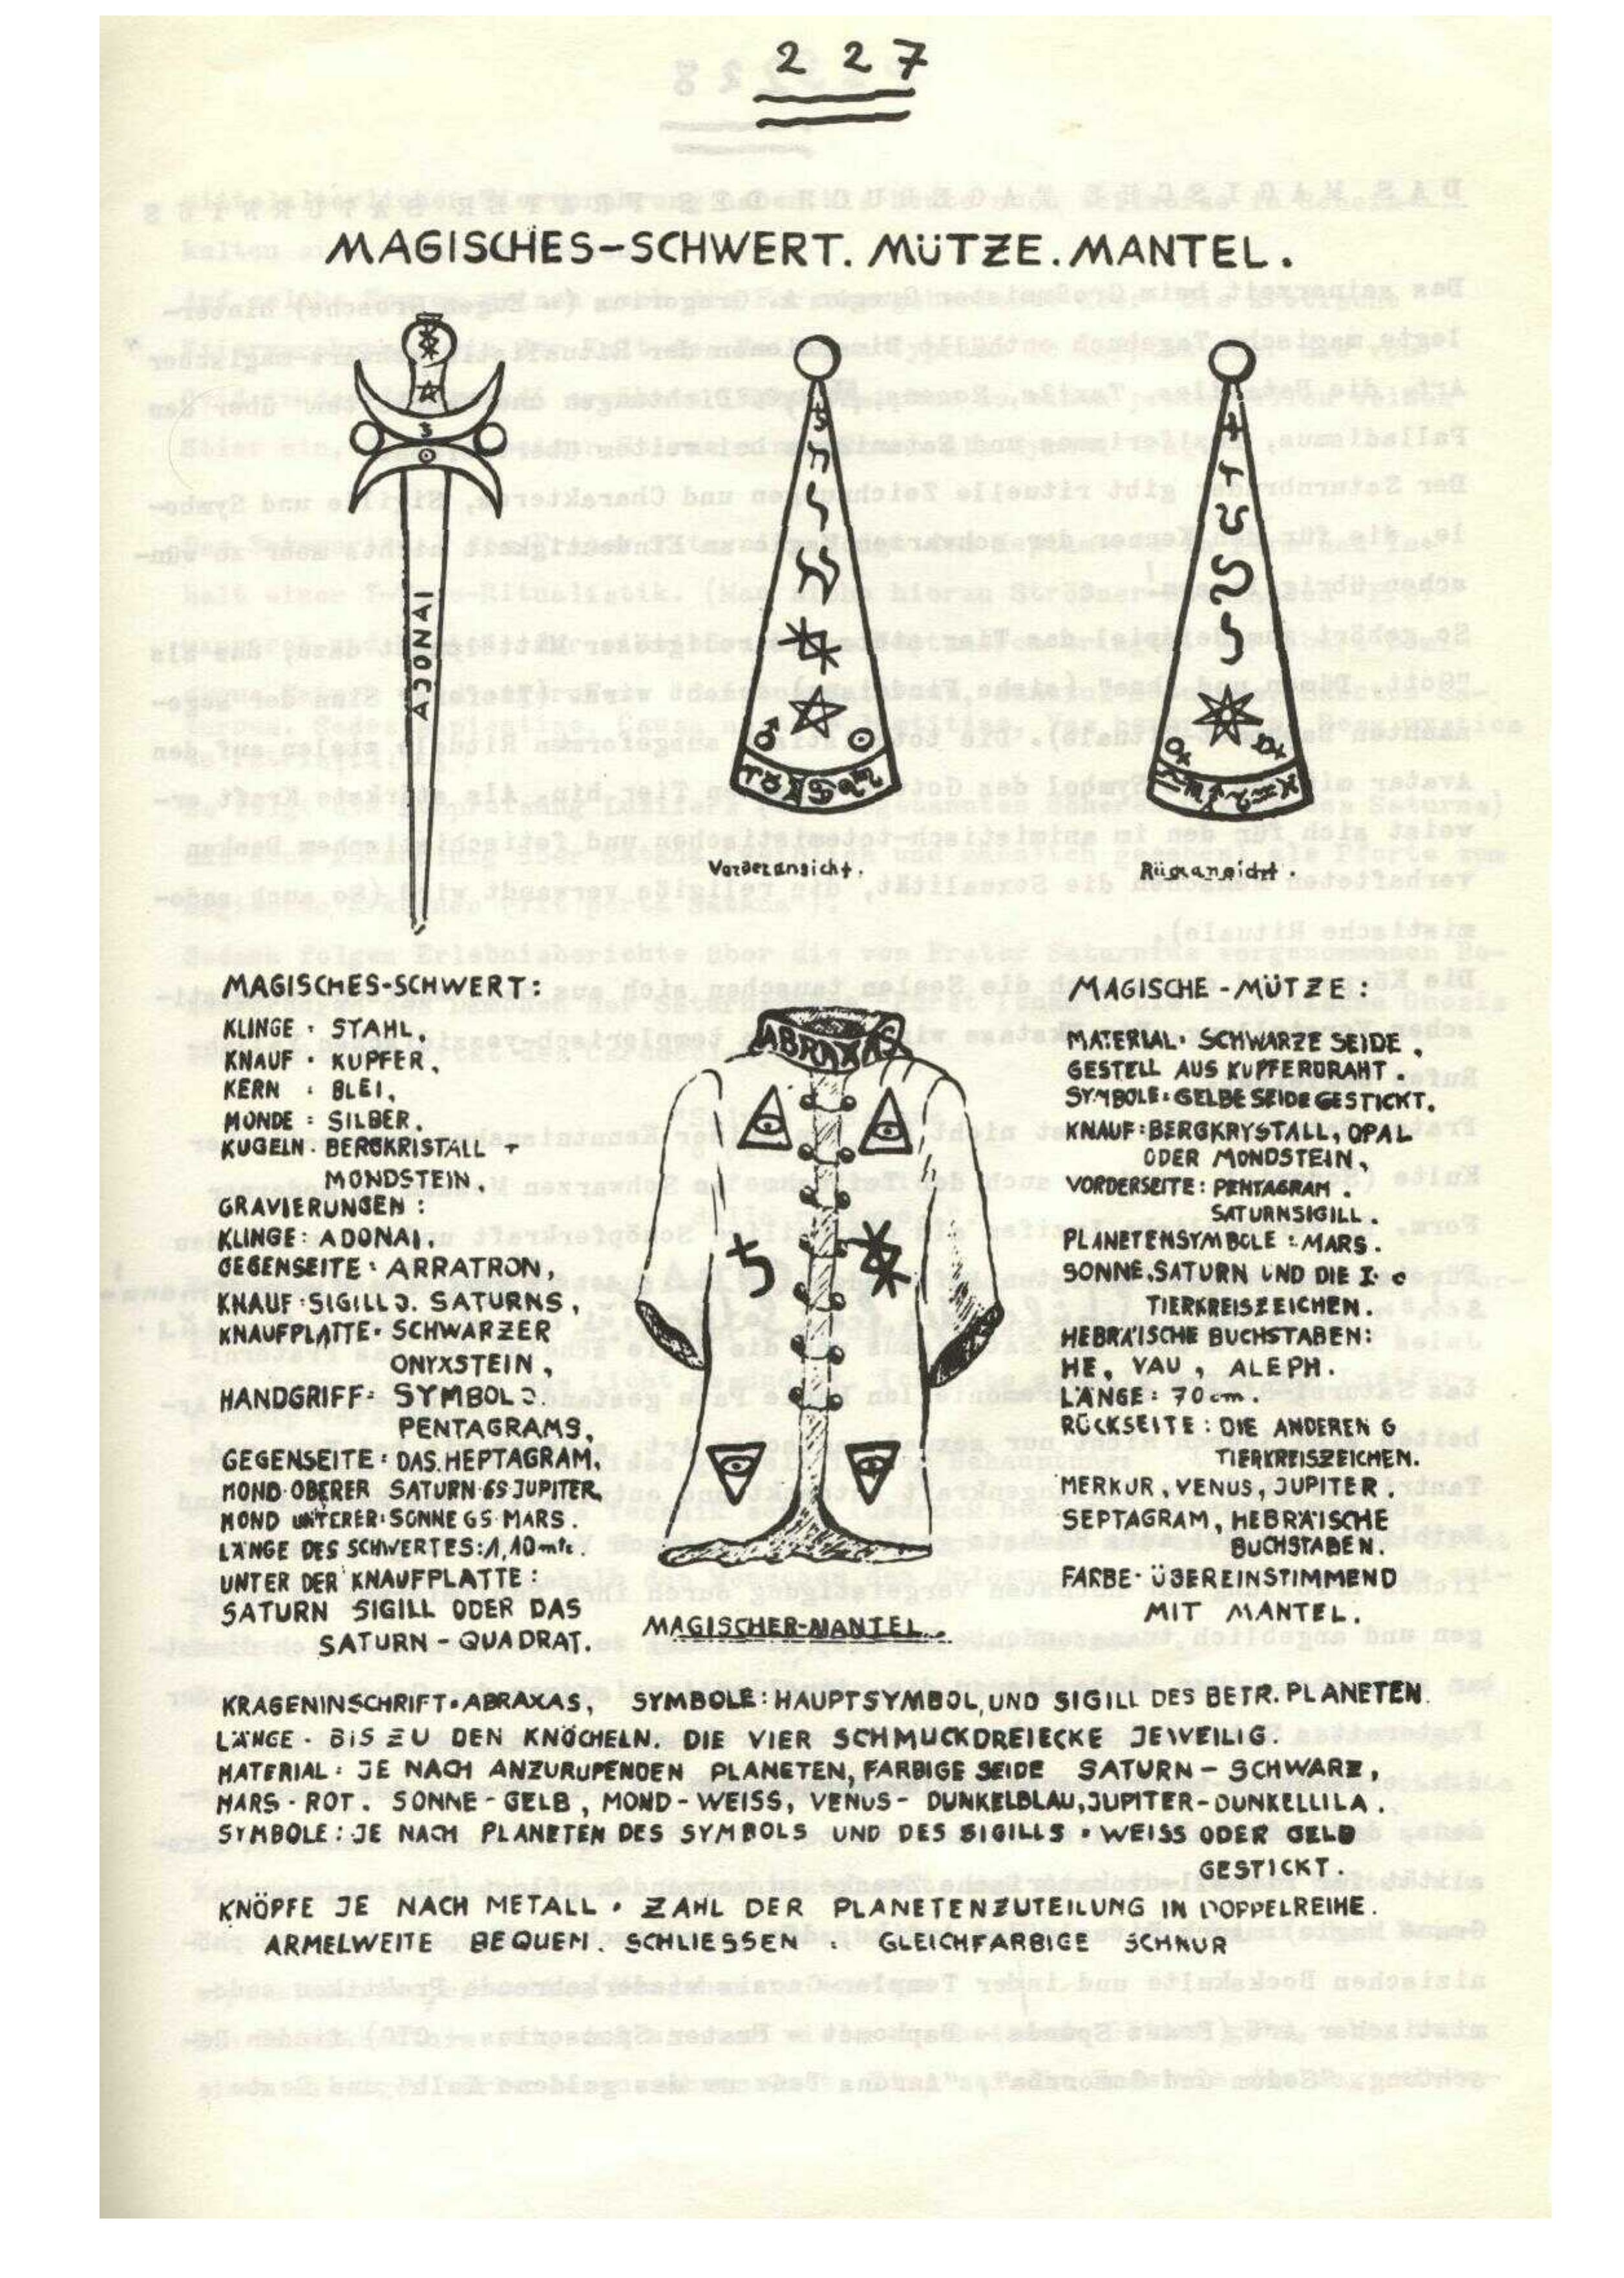 2 2 7
MAGISCHES-SCHWERT. MÜTZE. MANTEL.
ADONAI
Vorderansicht.
Rügxansicht.
MAGISCHES-SCHWERT:
KLINGE : STAHL.
KNAUF : KUPFER.
KERN : BLEI.
MONDE : SILBER.
KUGELN. BERGKRISTALL +
MONDSTEIN.
GRAVIERUNGEN :
KLINGE: ADONAI.
GEGENSEITE : ARRATRON,
KNAUF:SIGILL D. SATURNS,
KNAUFPLATTE. SCHWARZER
ONYXSTEIN,
HANDGRIFF: SYMBOL D.
PENTAGRAMS,
GEGENSEITE : DAS.HEPTAGRAM.
MOND OBERER SATURN GS JUPITER
MOND UNTERER:SONNE GS MARS.
LÄNGE DES SCHWERTES:1,10 mtr.
UNTER DER KNAUFPLATTE:
SATURN SIGILL ODER DAS
SATURN - QUADRAT.
ABRAXAS
MAGISCHER-MANTEL.
MAGISCHE - MÜTZE :
MATERIAL. SCHWARZE SEIDE.
GESTELL AUS KUPFERDRAHT.
SYMBOLE: GELBE SEIDE GESTICKT.
KNAUF: BERGKRYSTALL, OPAL
ODER MONDSTEIN,
VORDERSEITE: PENTAGRAM.
SATURNSIGILL.
PLANETENSYMBOLE : MARS.
SONNE.SATURN UND DIE I.
TIERKREISZEICHEN.
HEBRÄISCHE BUCHSTABEN:
HE, VAU, ALEPH.
LÄNGE: 70 cm.
RÜCKSEITE : DIE ANDEREN 6
TIERKREISZEICHEN.
MERKUR, VENUS, JUPITER.
SEPTAGRAM, HEBRÄISCHE
BUCHSTABEN.
FARBE- ÜBEREINSTIMMEND
MIT MANTEL.
KRAGENINSCHRIFT. ABRAXAS, SYMBOLE: HAUPTSYMBOL, UND SIGILL DES BETR. PLANETEN.
LÄNGE . BIS ZU DEN KNÖCHELN. DIE VIER SCHMUCKDREIECKE JEWEILIG.
MATERIAL : JE NACH ANZURUPENDEN PLANETEN, FARBIGE SEIDE SATURN - SCHWARZ,
MARS - ROT. SONNE - GELB, MOND - WEISS, VENUS - DUNKELBLAU, JUPITER - DUNKELLILA.
SYMBOLE : JE NACH PLANETEN DES SYMBOLS UND DES SIGILLS . WEISS ODER GELB
GESTICKT.
KNÖPFE JE NACH METALL . ZAHL DER PLANETENZUTEILUNG IN DOPPELREIHE.
ARMELWEITE BEQUEM. SCHLIESSEN : GLEICHFARBIGE SCHNUR